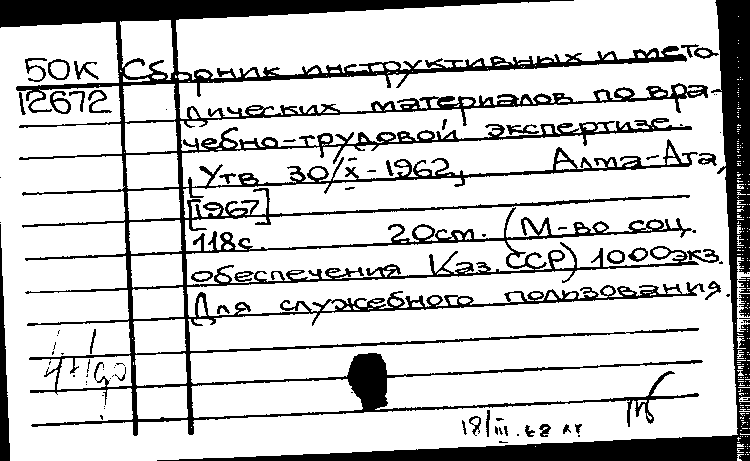 50К Сборник инструктивных и мето-
12672 дических материалов по вра-
чебно-трудовой экспертизе.
[Утв. 30/X-1962, Алма-Ата,
[1967]
118с. 20см. (М-во соц.
обеспечения Каз.ССР) 1000экз.
Для служебного пользования.
18/III.68